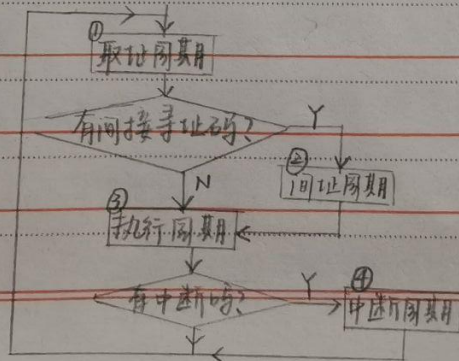 ①
取址周期
有间接寻址码?
Y
②
间址周期
N
③
执行周期
有中断吗?
Y
④
中断周期